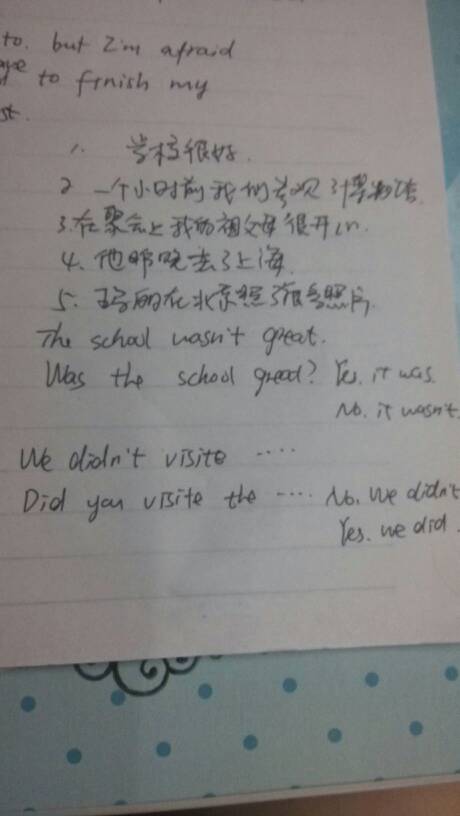 to. but I'm afraid
to finish my
st.
1. 学校很好.
2 一个小时前我们参观了博物馆.
3.在聚会上我的祖父母很开心.
4. 他昨晚去了上海.
5. 玛丽在北京照了很多照片.
The school wasn't great.
Was the school great? Yes. it was.
No. it wasn't.
We didn't visite ....
Did you visite the .... No. We didn't
Yes. we did.